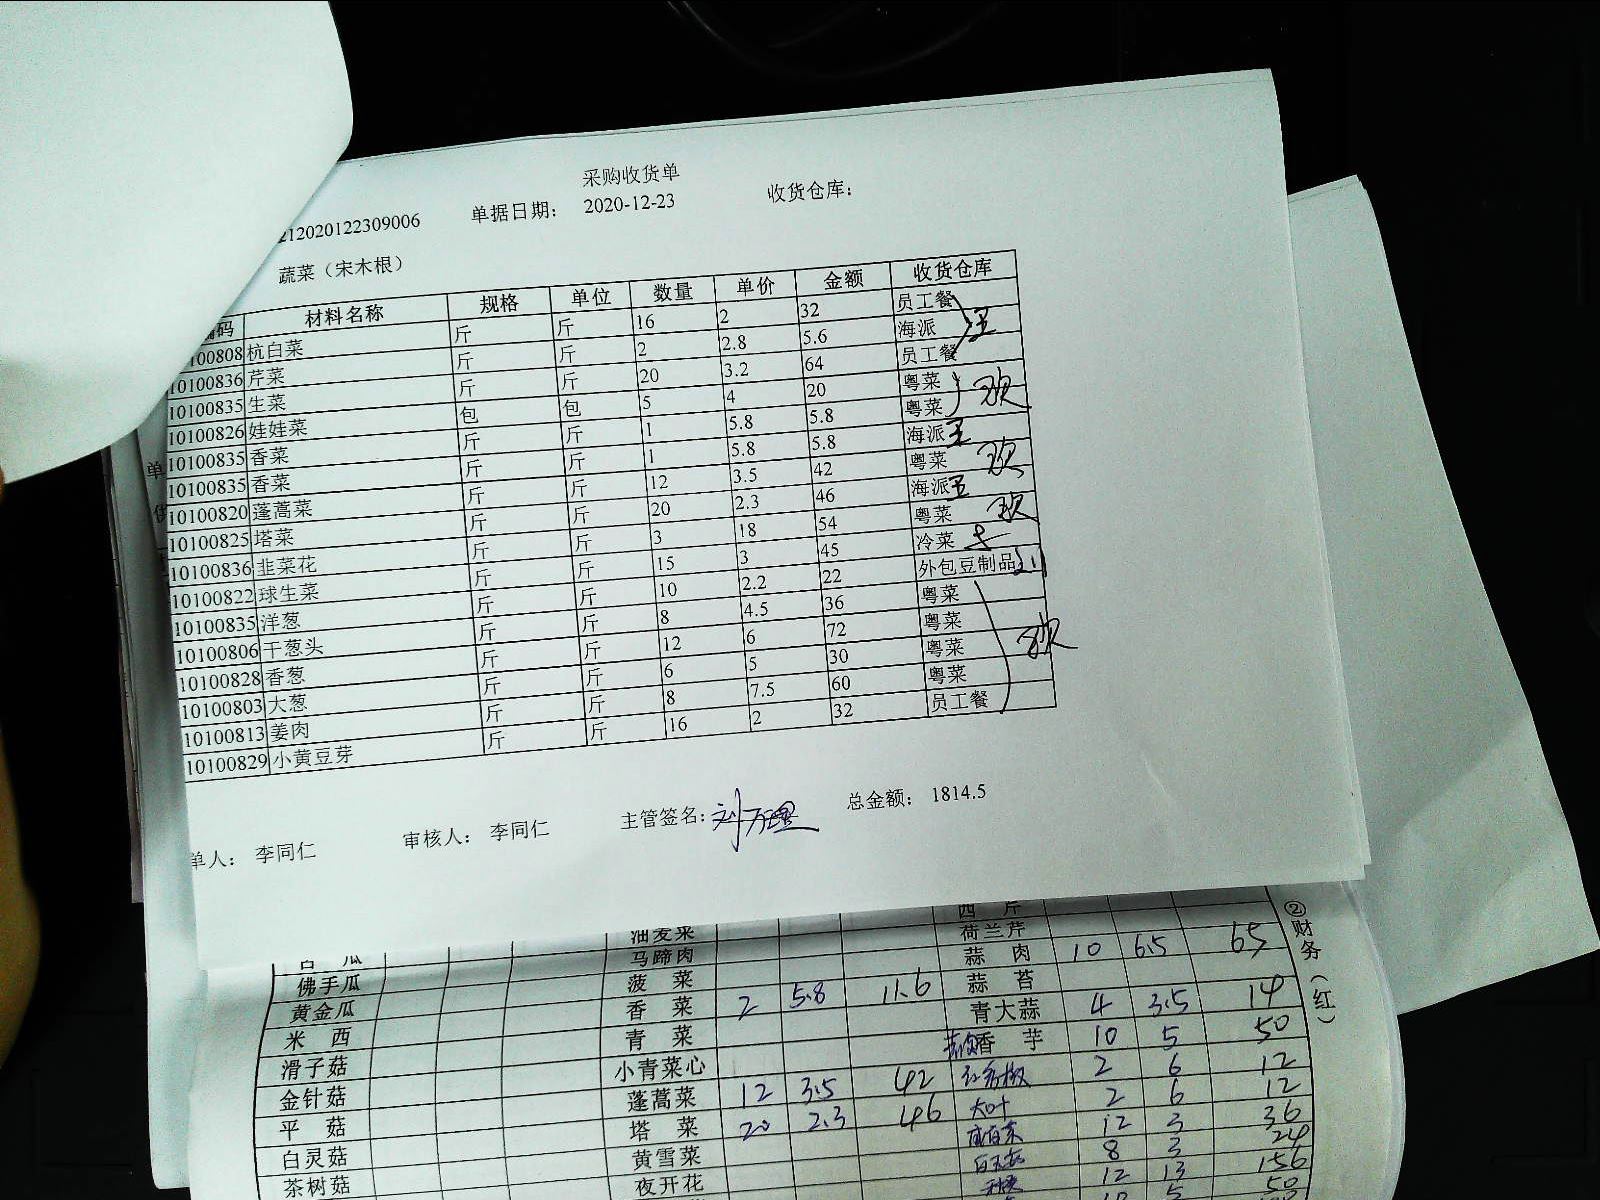 采购收货单
212020122309006 单据日期： 2020-12-23 收货仓库：
蔬菜（宋木根）
编码 材料名称 规格 单位 数量 单价 金额 收货仓库
100808 杭白菜 斤 斤 16 2 32 员工餐
10100836 芹菜 斤 斤 2 2.8 5.6 海派 王
10100835 生菜 斤 斤 20 3.2 64 员工餐
10100826 娃娃菜 包 包 5 4 20 粤菜
10100835 香菜 斤 斤 1 5.8 5.8 粤菜
10100835 香菜 斤 斤 1 5.8 5.8 海派 王
10100820 蓬蒿菜 斤 斤 12 3.5 42 粤菜
10100825 塔菜 斤 斤 20 2.3 46 海派 王
10100836 韭菜花 斤 斤 3 18 54 粤菜
10100822 球生菜 斤 斤 15 3 45 冷菜
10100835 洋葱 斤 斤 10 2.2 22 外包豆制品
10100806 干葱头 斤 斤 8 4.5 36 粤菜
10100828 香葱 斤 斤 12 6 72 粤菜
10100803 大葱 斤 斤 6 5 30 粤菜
10100813 姜肉 斤 斤 8 7.5 60 粤菜
10100829 小黄豆芽 斤 斤 16 2 32 员工餐
单人： 李同仁 审核人： 李同仁 主管签名： 刘万理 总金额： 1814.5
②财务（红）
西 芹
油麦菜 荷兰芹
白 瓜 马蹄肉 蒜 肉 10 6.5 65
佛手瓜 菠 菜 蒜 苔
黄金瓜 香 菜 2 5.8 11.6 青大蒜 4 3.5 14
米 西 青 菜 香 芋 10 5 50
滑子菇 小青菜心 2 6 12
金针菇 蓬蒿菜 12 3.5 42 大叶 2 6 12
平 菇 塔 菜 20 2.3 46 12 3 36
白灵菇 黄雪菜 8 3 24
茶树菇 夜开花 12 13 156